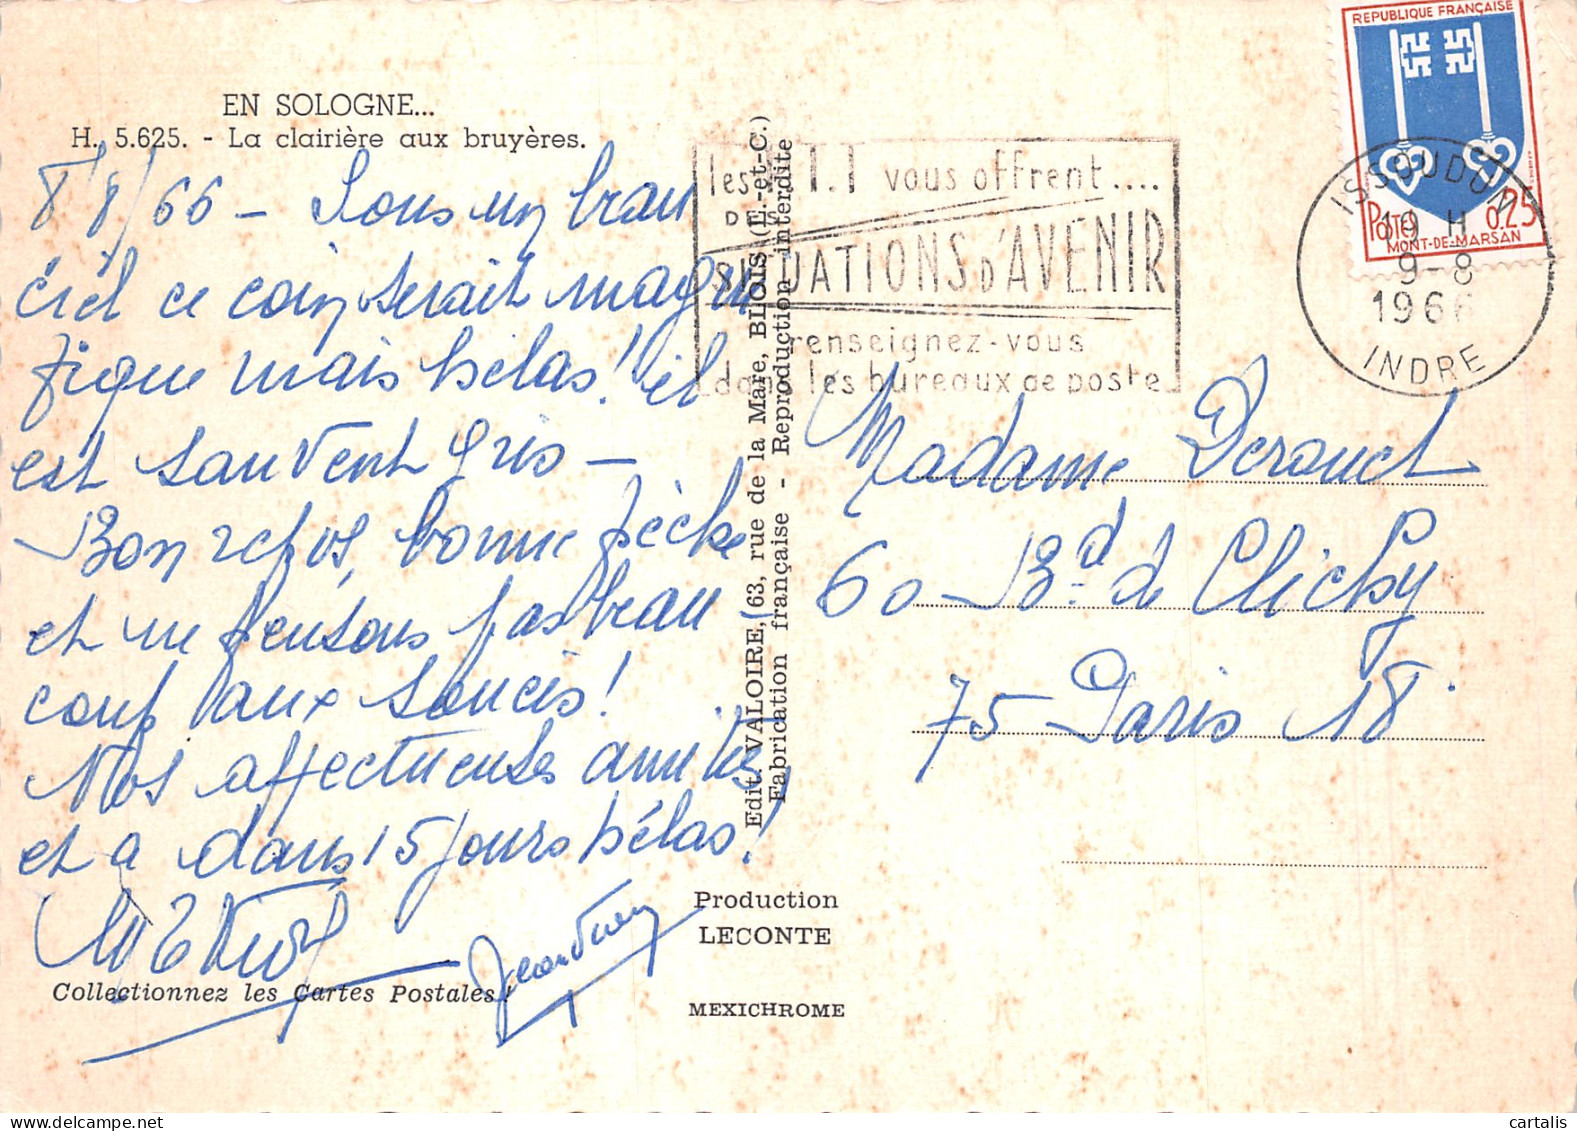 EN SOLOGNE...
H. 5.625. - La clairière aux bruyères.
8/8/66 - Sous un beau
ciel ce coin serait magni
fique mais hélas! il
est souvent gris -
Bon repos, bonne pêche
et ne pensons pas beau
coup aux soucis!
Nos affectueuses amitiés,
et à dans 15 jours hélas!
Collectionnez les Cartes Postales!
Edit. VALOIRE, 63, rue de la Mare, BLOIS (L.-et-C.)
Fabrication française - Reproduction interdite
Production
LECONTE
MEXICHROME
les P.T.T vous offrent....
DES
SITUATIONS D'AVENIR
renseignez-vous
dans les bureaux de poste
REPUBLIQUE FRANÇAISE
POSTES 0,25
MONT-DE-MARSAN
ISSOUDUN
19 H
9-8
1966
INDRE
Madame Derouet
60 - Bd de Clichy
75 - Paris 18